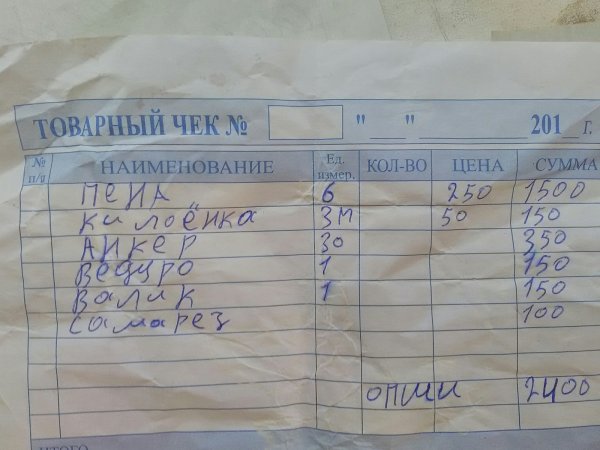 ТОВАРНЫЙ ЧЕК № " " 201 г.
№ п/п НАИМЕНОВАНИЕ Ед. измер. КОЛ-ВО ЦЕНА СУММА
ПЕНА 6 250 1500
килоёнка 3м 50 150
АНКЕР 30 350
Ведуро 1 150
Валик 1 150
самарез 100
2400
ИТОГО